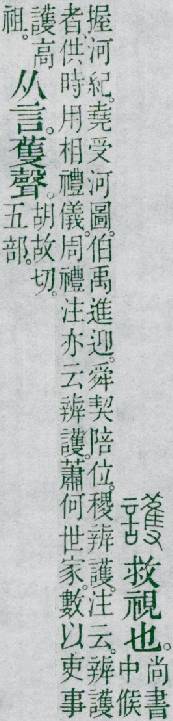 護救視也。尚書
中候
握河紀。堯受河圖。伯禹進迎。舜契陪位。稷辨護。注云。辨護
者供時用相禮儀。周禮注亦云辨護。蕭何世家。數以吏事
護高
祖。
从言蒦聲。
胡故切。
五部。